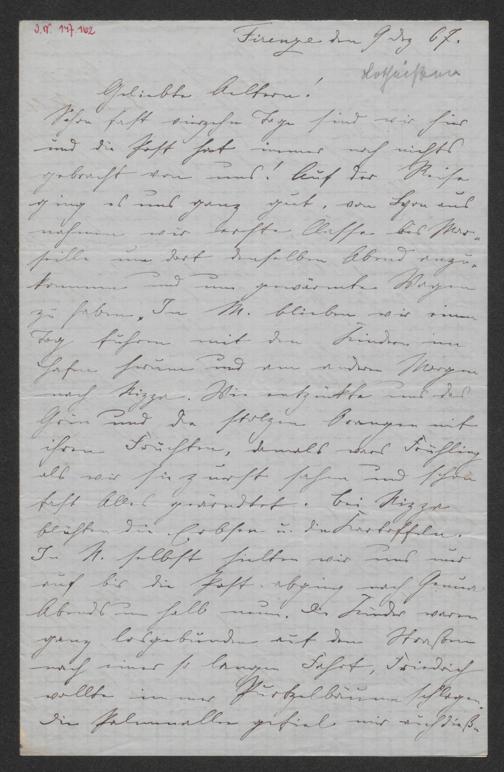 J.N. 147.162
Firenze den 9 Dez 67.
Geliebte Aeltern!
Schon fast vierzehn Tage sind wir hier
und die Post hat immer noch nichts
gebracht von uns! Auf der Reise
ging es uns ganz gut, von Lyon aus
nahmen wir erste Classe bis Mar-
seille um dort denselben Abend anzu-
kommen und um gewärmte Wagen
zu haben. In M. blieben wir einen
Tag fuhren mit den Kindern im
Hafen herum und am andern Morgen
nach Nizza. Wie entzückte uns das
Grün und die stolzen Orangen mit
ihren Früchten, damals wars Frühling
als wir sie zuerst sahen und schon
fast Alles geärndtet. Bei Nizza
blühten die Erbsen u. die Kartoffeln.
In N. selbst hielten wir uns nur
auf bis die Post abging nach Genua
Abends um halb neun. Die Kinder waren
ganz losgebunden auf den Straßen
nach einer so langen Fahrt, Friedrich
wollte immer Purtzelbäume schlagen.
Die Palmenallee gefiel mir